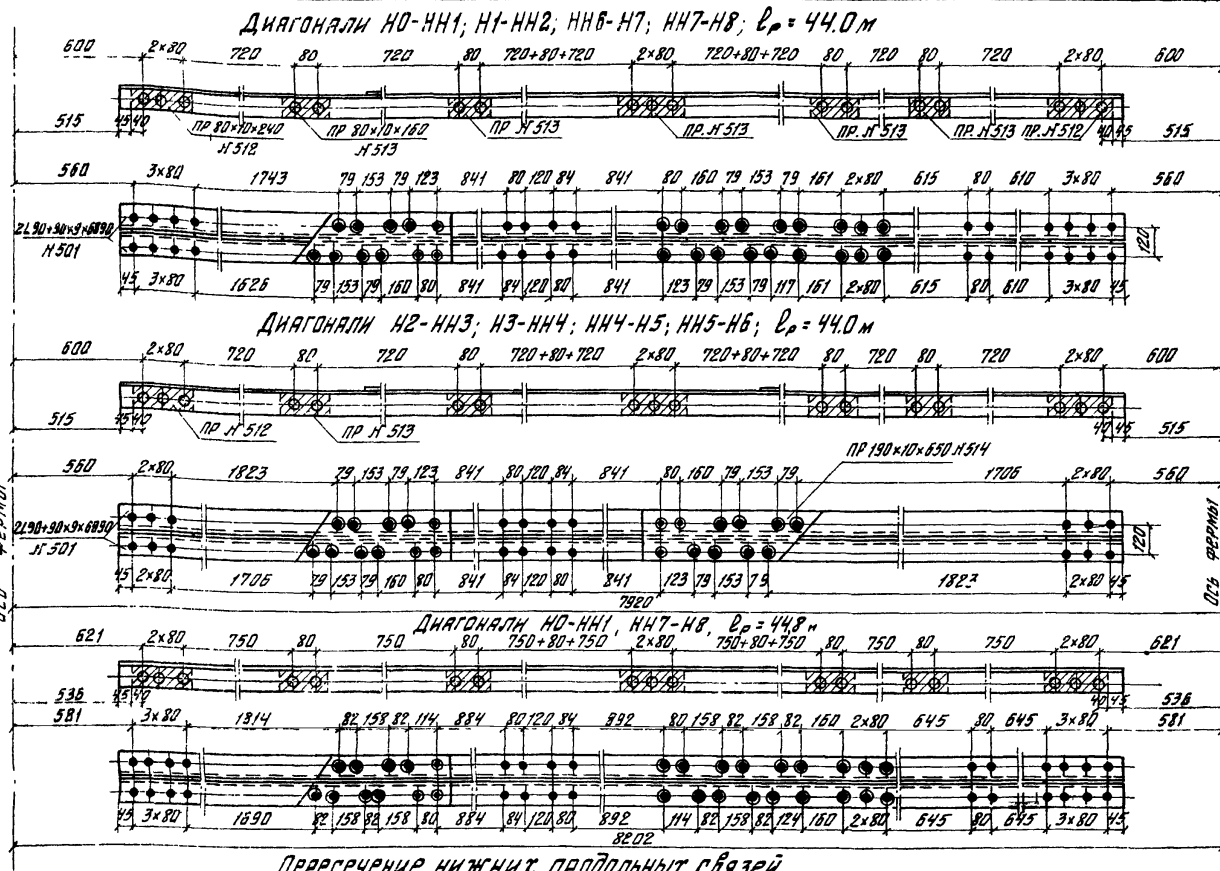 Диагонали Н0-НН1; Н1-НН2; НН6-Н7; НН7-Н8; ℓр = 44.0 м
600 2×80 720 80 720 80 720+80+720 2×80 720+80+720 80 720 80 720 2×80 600
515 45 40 ПР 80×10×240 ПР 80×10×160 ПР. N 513 ПР. N 513 ПР. N 513 ПР. N 513 ПР. N 512 40 45 515
N 512 N 513
560 3×80 1743 79 153 79 123 841 80 120 84 841 80 160 79 153 79 161 2×80 615 80 610 3×80 560
2L90+90×9×6890
N 501
120
45 3×80 1626 79 153 79 160 80 841 84 120 80 841 123 79 153 79 117 161 2×80 615 80 610 3×80 45
Диагонали Н2-НН3; Н3-НН4; НН4-Н5; НН5-Н6; ℓр = 44.0 м
600 2×80 720 80 720 80 720+80+720 2×80 720+80+720 80 720 80 720 2×80 600
515 45 40 ПР. N 512 ПР. N 513 40 45 515
ПР 190×10×650 N 514
560 2×80 1823 79 153 79 123 841 80 120 84 841 80 160 79 153 79 1706 2×80 560
2L90+90×9×6890
N 501
120
45 2×80 1706 79 153 79 160 80 841 84 120 80 841 123 79 153 79 1823 2×80 45
7920
Ось фермы
Диагонали Н0-НН1, НН7-Н8, ℓр = 44,8 м
621 2×80 750 80 750 80 750+80+750 2×80 750+80+750 80 750 80 750 2×80 621
536 45 40 40 45 536
581 3×80 1814 82 158 82 114 884 80 120 84 892 80 158 82 158 82 160 2×80 645 80 645 3×80 581
45 3×80 1690 82 158 82 158 80 884 84 120 80 892 114 82 158 82 124 160 2×80 645 80 645 3×80 45
8202
Пересечение нижних продольных связей